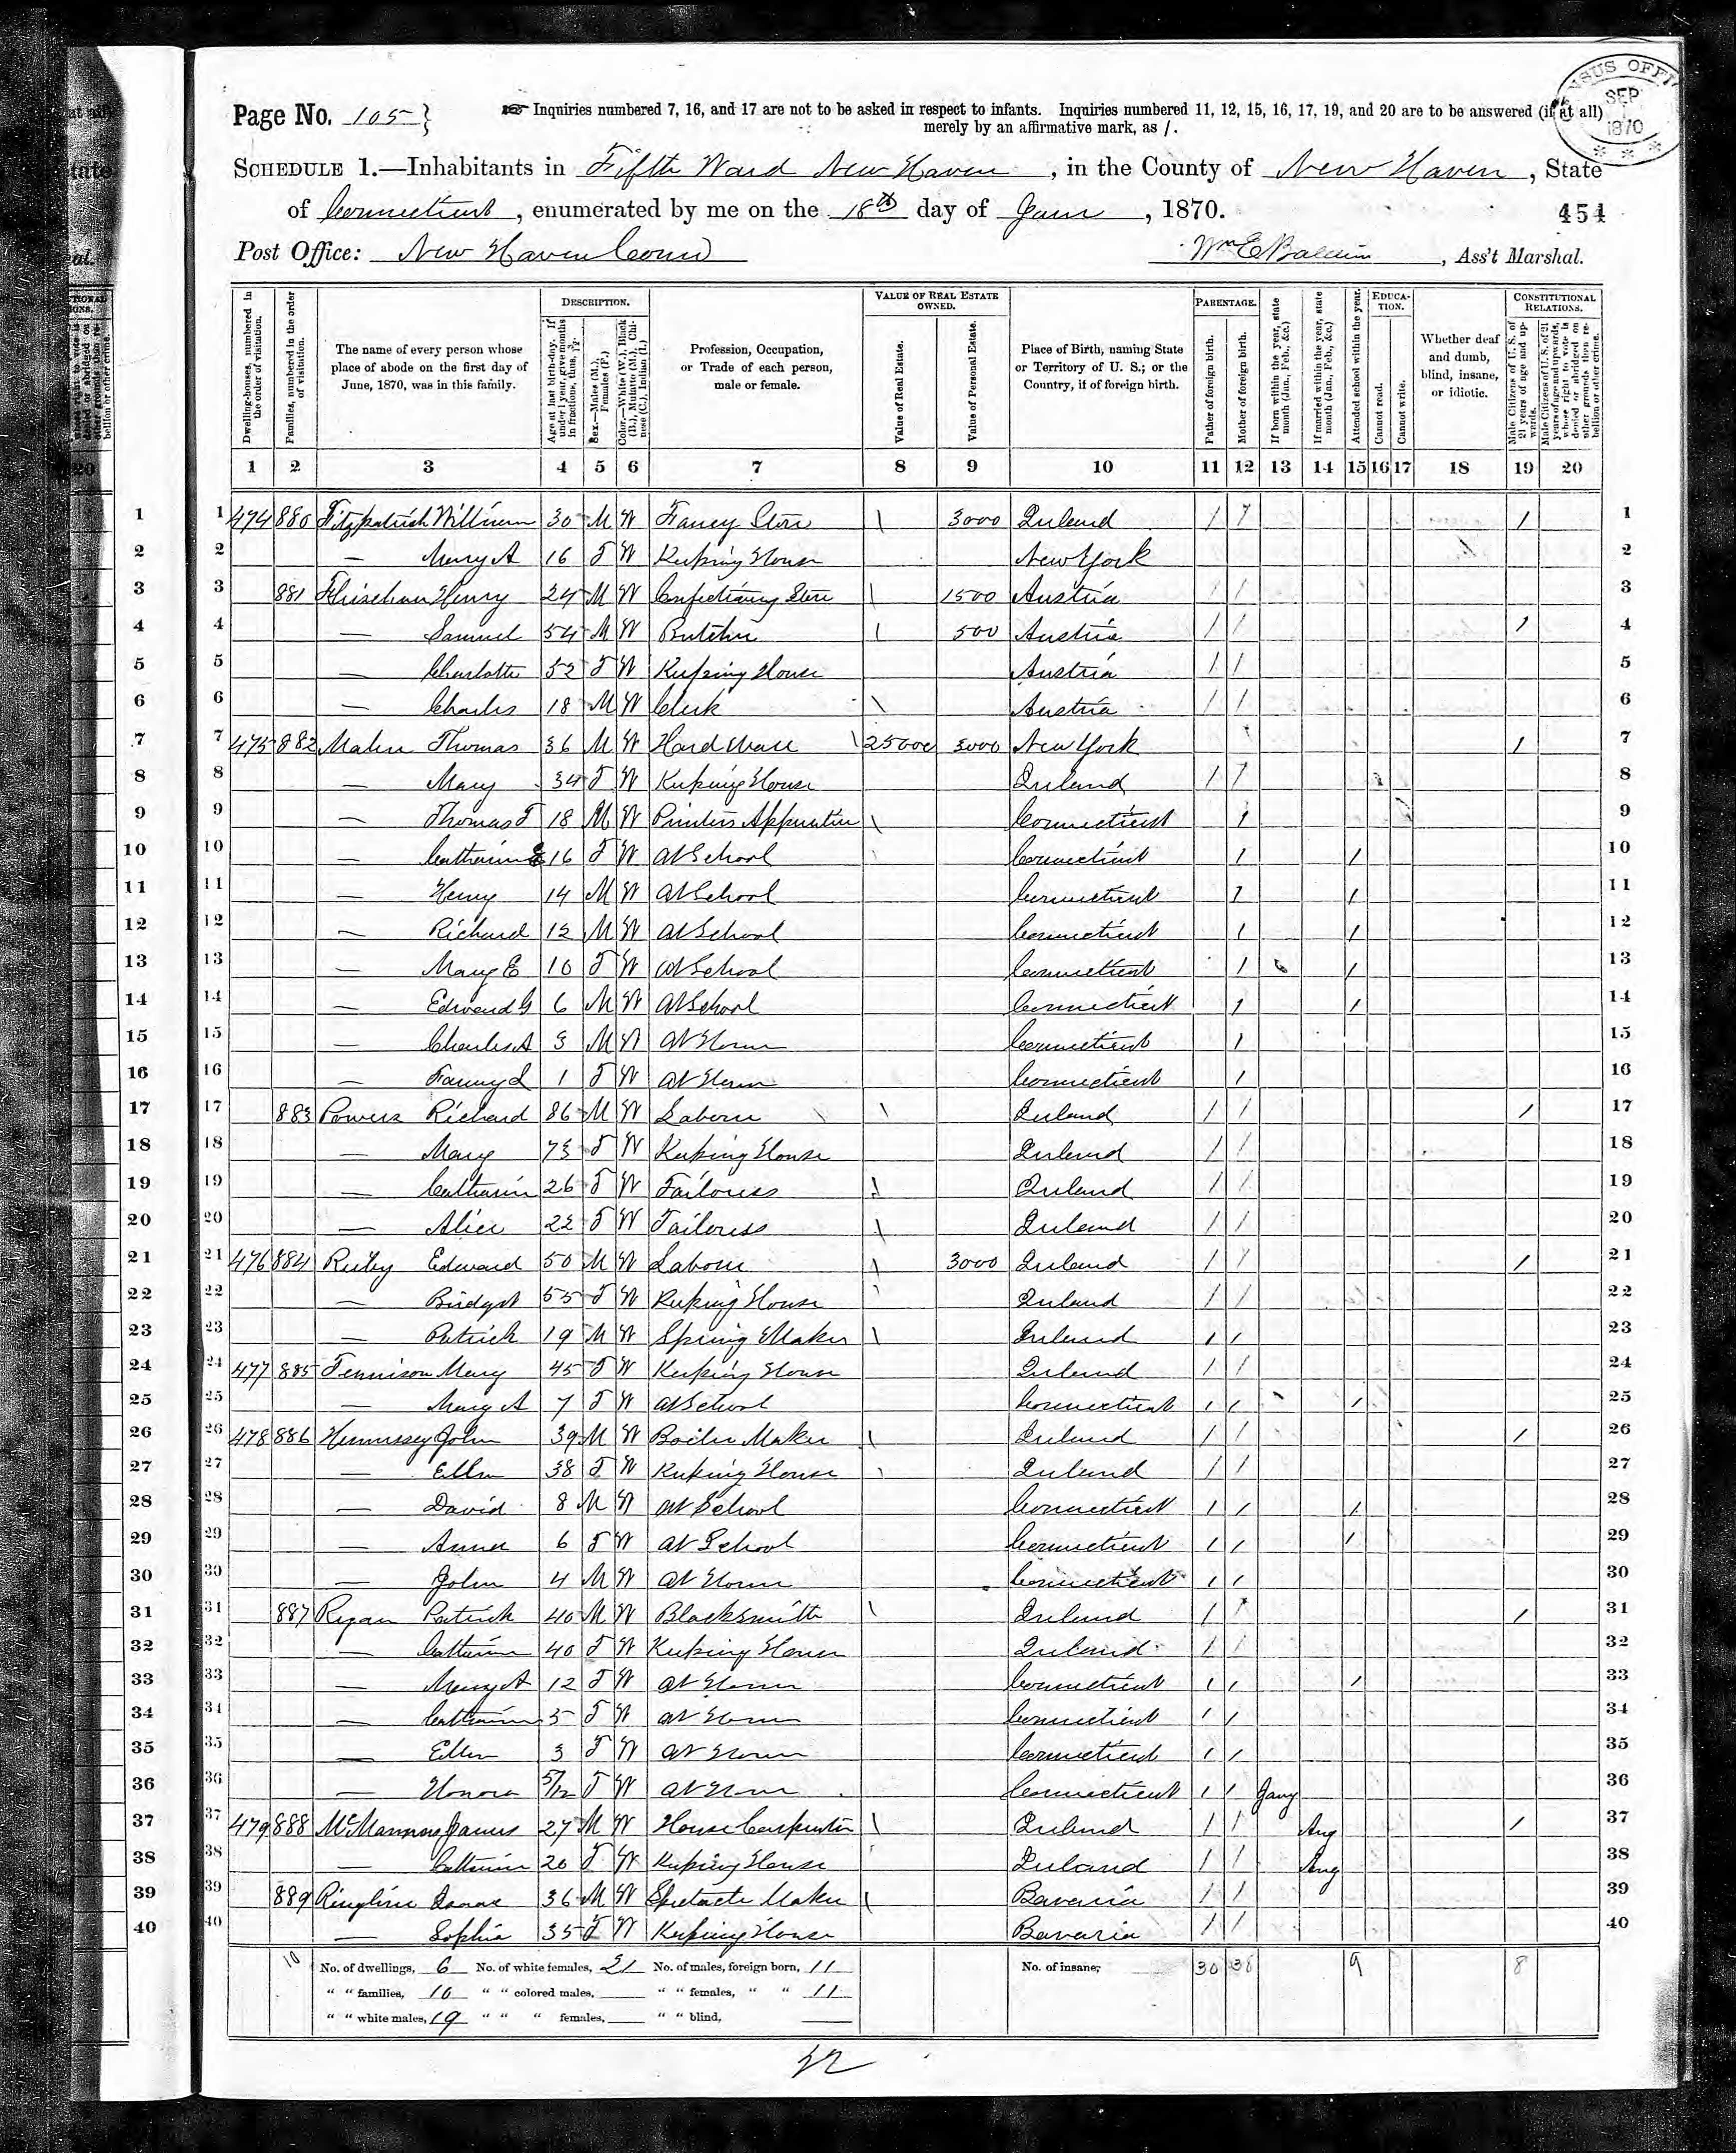 Page No. 105 } ☞ Inquiries numbered 7, 16, and 17 are not to be asked in respect to infants. Inquiries numbered 11, 12, 15, 16, 17, 19, and 20 are to be answered (if at all)
merely by an affirmative mark, as /.
CENSUS OFFI
SEP
1870
SCHEDULE 1.—Inhabitants in Fifth Ward New Haven, in the County of New Haven, State
of Connecticut, enumerated by me on the 18th day of June, 1870.
454
Post Office: New Haven Conn
Wm E Baldwin, Ass't Marshal.
Dwelling-houses, numbered in the order of visitation.
Families, numbered in the order of visitation.
The name of every person whose place of abode on the first day of June, 1870, was in this family.
DESCRIPTION.
Age at last birth-day. If under 1 year, give months in fractions, thus, 3/12.
Sex.—Males (M.), Females (F.)
Color.—White (W.), Black (B.), Mulatto (M.), Chinese (C.), Indian (I.)
Profession, Occupation, or Trade of each person, male or female.
VALUE OF REAL ESTATE OWNED.
Value of Real Estate.
Value of Personal Estate.
Place of Birth, naming State or Territory of U. S.; or the Country, if of foreign birth.
PARENTAGE.
Father of foreign birth.
Mother of foreign birth.
If born within the year, state month (Jan., Feb., &c.)
If married within the year, state month (Jan., Feb., &c.)
Attended school within the year.
EDUCATION.
Cannot read.
Cannot write.
Whether deaf and dumb, blind, insane, or idiotic.
CONSTITUTIONAL RELATIONS.
Male Citizens of U. S. of 21 years of age and upwards.
Male Citizens of U. S. of 21 years of age and upwards, whose right to vote is denied or abridged on other grounds than rebellion or other crime.
1 2 3 4 5 6 7 8 9 10 11 12 13 14 15 16 17 18 19 20
1 474 880 Fitzpatrick William 30 M W Fancy Store \ 3000 Ireland / / / 1
2 — Mary A 16 F W Keeping House New York 2
3 881 Henry 24 M W Confectionery Store \ 1500 Austria / / 3
4 — Samuel 54 M W Butcher \ 500 Austria / / / 4
5 — Charlotte 52 F W Keeping House Austria / / 5
6 — Charles 18 M W Clerk \ Austria / / 6
7 475 882 Maher Thomas 36 M W Hard Ware \ 25000 3000 New York / 7
8 — Mary 34 F W Keeping House Ireland / / 8
9 — Thomas F 18 M W Printers Apprentice \ Connecticut / 9
10 — Catharine E 16 F W At School Connecticut / / 10
11 — Henry 14 M W At School Connecticut / / 11
12 — Richard 12 M W At School Connecticut / / 12
13 — Mary E 10 F W At School Connecticut / / 13
14 — Edward G 6 M W At School Connecticut / / 14
15 — Charles A 3 M W At Home Connecticut / 15
16 — Fanny L 1 F W At Home Connecticut / 16
17 883 Powers Richard 86 M W Laborer \ Ireland / / / 17
18 — Mary 73 F W Keeping House Ireland / / 18
19 — Catharine 26 F W Tailoress \ Ireland / / 19
20 — Alice 22 F W Tailoress \ Ireland / / 20
21 476 884 Edward 50 M W Laborer \ 3000 Ireland / / / 21
22 — Bridget 55 F W Keeping House Ireland / / 22
23 — Patrick 19 M W Spring Maker \ Ireland / / 23
24 477 885 Tennison Mary 45 F W Keeping House Ireland / / 24
25 — Mary A 7 F W At School Connecticut / / / 25
26 478 886 Hennessey John 39 M W Boiler Maker \ Ireland / / / 26
27 — Ellen 38 F W Keeping House Ireland / / 27
28 — David 8 M W At School Connecticut / / / 28
29 — Anna 6 F W At School Connecticut / / / 29
30 — John 4 M W At Home Connecticut / / 30
31 887 Ryan Patrick 40 M W Blacksmith \ Ireland / / / 31
32 — Catharine 40 F W Keeping House Ireland / / 32
33 — Mary A 12 F W At Home Connecticut / / / 33
34 — Catharine 5 F W At Home Connecticut / / 34
35 — Ellen 3 F W At Home Connecticut / / 35
36 — Honora 5/12 F W At Home Connecticut / / Jany 36
37 479 888 McMannus James 27 M W House Carpenter \ Ireland / / Aug / 37
38 — Catharine 20 F W Keeping House Ireland / / Aug 38
39 889 Isaac 36 M W Spectacle Maker \ Bavaria / / 39
40 — Sophia 35 F W Keeping House Bavaria / / 40
10 No. of dwellings, 6 No. of white females, 21 No. of males, foreign born, 11 No. of insane, 30 38 9 8
" " families, 10 " " colored males, " " females, " " 11
" " white males, 19 " " " females, " " blind,